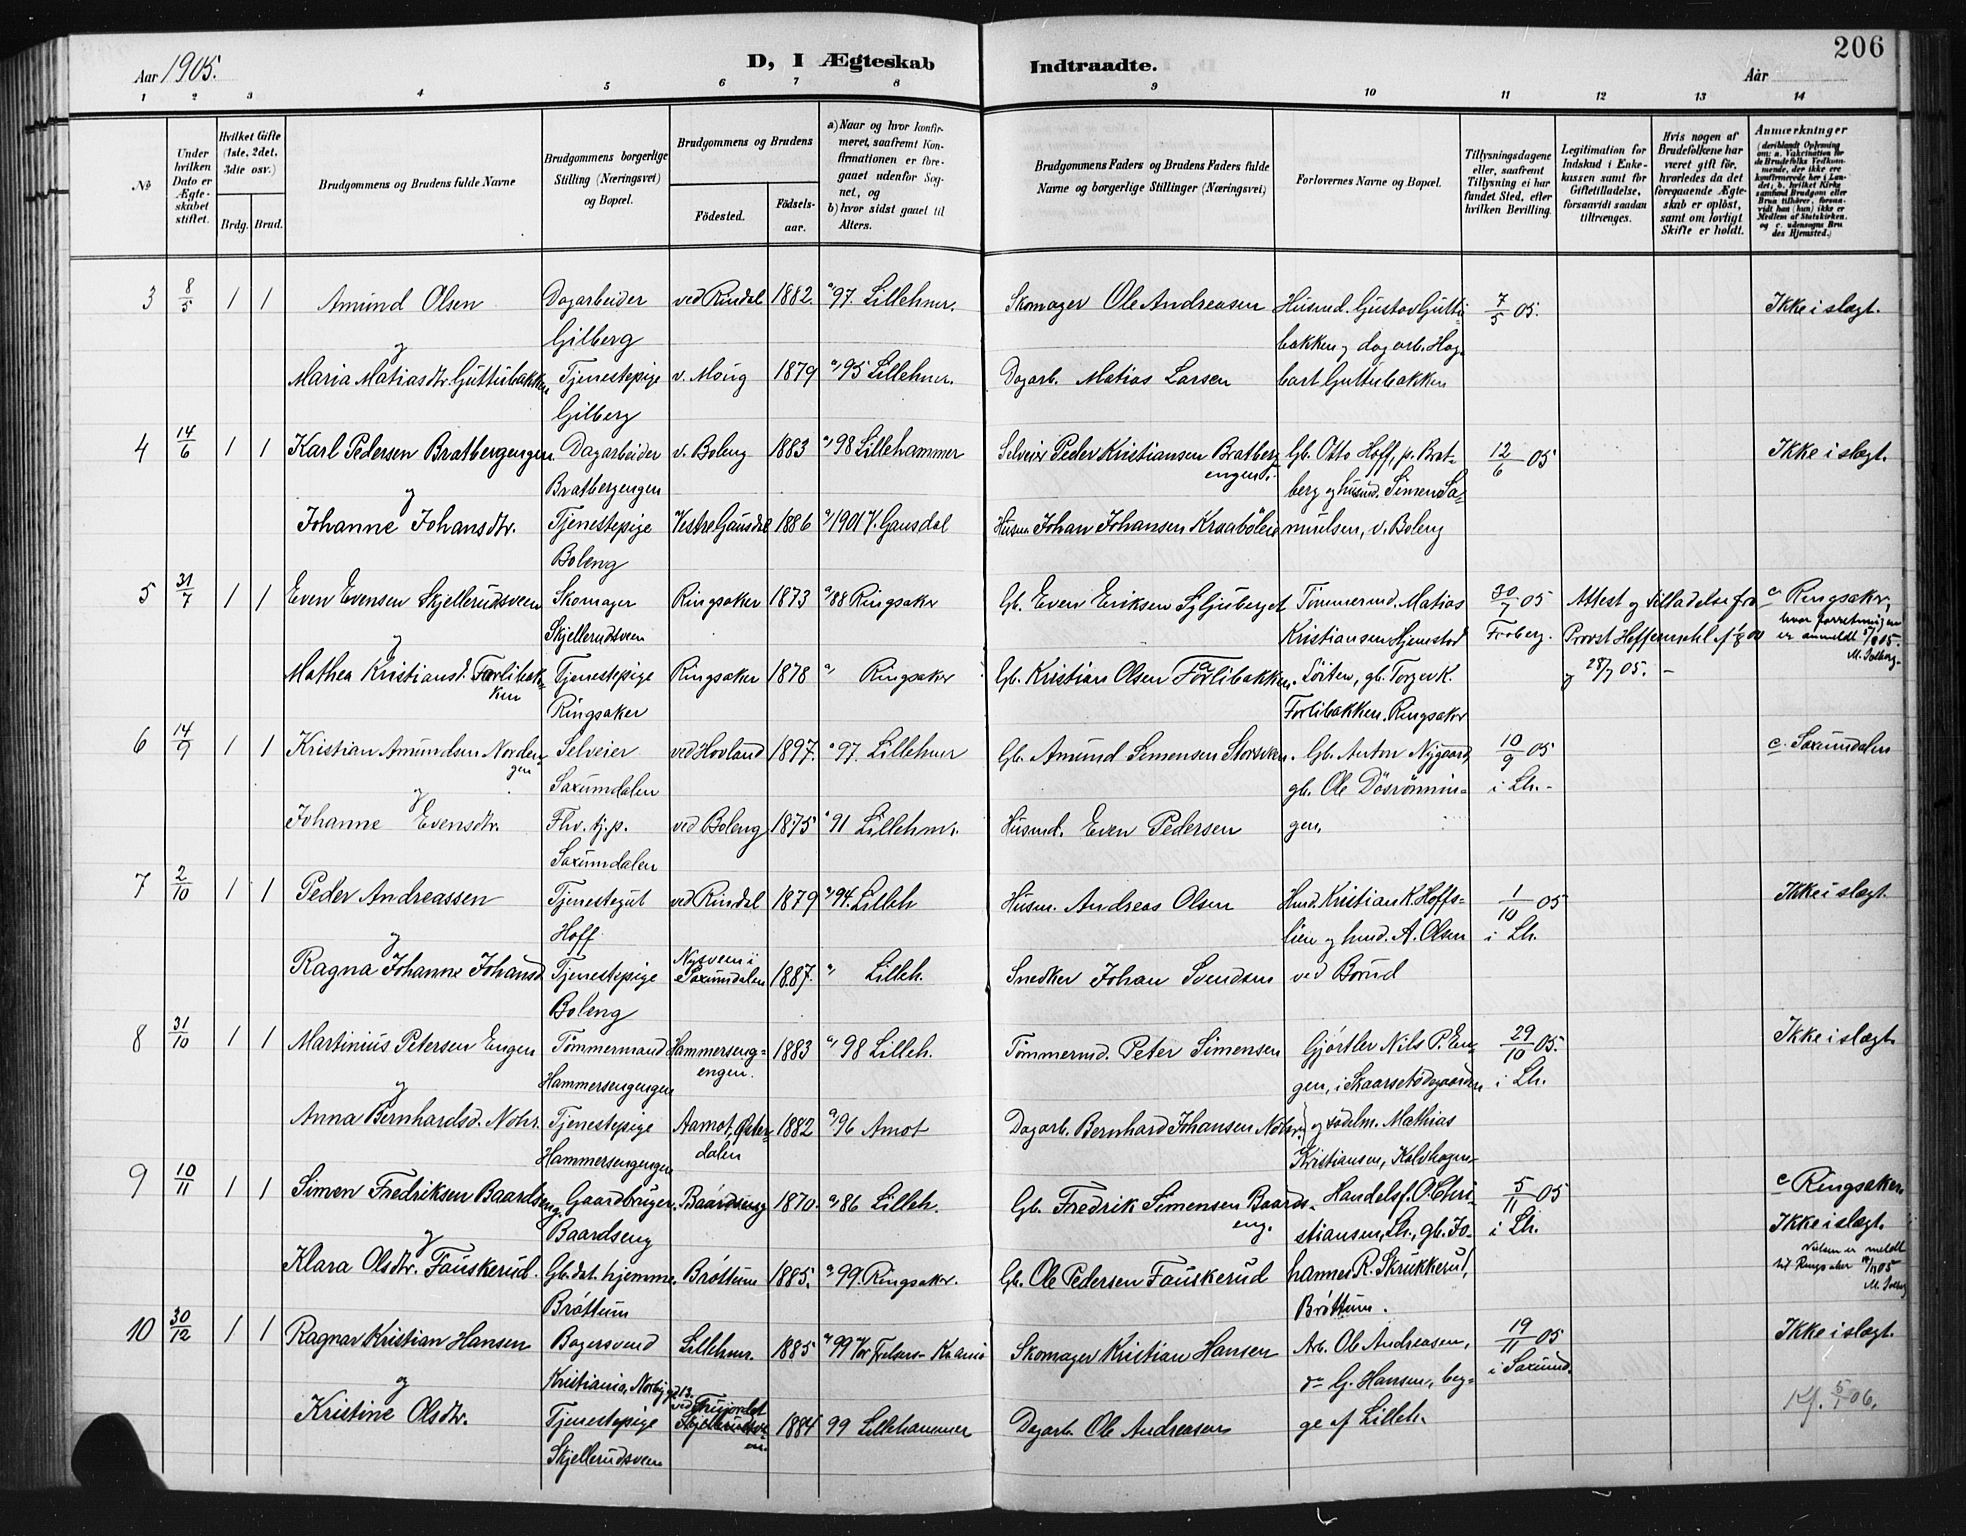 206
Aar 1905.
D, I Ægteskab Indtraadte.
Aar
1 2 3 4 5 6 7 8 9 10 11 12 13 14
No
Under hvilken Dato er Ægteskabet stiftet.
Hvilket Gifte (1ste, 2det, 3die osv.)
Brdg. Brud.
Brudgommens og Brudens fulde Navne
Brudgommens borgerlige Stilling (Næringsvei) og Bopæl.
Brudgommens og Brudens
Födested.
Födsels-aar.
a) Naar og hvor konfirmeret, saafremt Konfirmationen er foregaaet udenfor Sognet, og
b) hvor sidst gaaet til Alters.
Brudgommens Faders og Brudens Faders fulde Navne og borgerlige Stillinger (Næringsvei)
Forlovernes Navne og Bopæl.
Tillysningsdagene eller, saafremt Tillysning ei har fundet Sted, efter hvilken Bevilling.
Legitimation for Indskud i Enkekassen samt for Giftetilladelse, forsaavidt saadan tiltrænges.
Hvis nogen af Brudefolkene har været gift för, hvorledes da det foregaaende Ægteskab er oplöst, samt om lovligt Skifte er holdt.
Anmærkninger
3 8/5 1 1 Amund Olsen Dagarbeider ved Rindal 1882 a 97 Lillehmr. Skomager Ole Andreasen Husmd. Gustav Guttu- 7/5 05. Ikke i slægt.
og Gilberg bakken og dagarb. Hag-
Maria Matiasdtr. Guttubakken Tjenestepige v. Moug 1879 a 95 Lillehmr. Dagarb. Matias Larsen bart Guttubakken
Gilberg
4 14/6 1 1 Karl Pedersen Bratbergengen Dagarbeider v. Boleng 1883 a 98 Lillehammer Selveier Peder Kristiansen Bratberg Gb. Otto Hoff, p. Brat- 12/6 05 Ikke i slægt.
og Bratbergengen engen berg og husmd. Simen Sa-
Johanne Johansdtr. Tjenestepige Vestre Gausdal 1886 a 1901 V. Gausdal Husm. Johan Johansen Kraabölei muelsen, v. Boleng
Boleng
5 31/7 1 1 Even Evensen Skjellerudsveen Skomager Ringsaker 1873 a 88 Ringsakr Gb. Even Eriksen Syljuberget Tømmermd. Matias 30/7 05 Attest og tilladelse fra c Ringsakr,
og Skjellerudsveen Kristiansen Hjemstad Froberg. Provst hvor forretningen er anmeldt
M. Solberg
Mathea Kristiansd. Forlibakken Tjenestepige Ringsaker 1878 a Ringsaker Gb. Kristian Olsen Forlibakken Löiten, gb. Torger K. og 28/7 05. -
Ringsaker Forlibakken, Ringsakr
6 14/9 1 1 Kristian Amundsen Nordengen Selveier ved Hovland 1897. a 97. Lillehmr Gb. Amund Simensen Storsveen. Gb. Anton Nygaard, 10/9 05 c. Saxumdalen
og Saxumdalen gb. Ole Dösrönnin- i Lh. -
Johanne Evensdtr. Fhv. tj.p. ved Boleng 1875 a 91 Lillehmr. Husmd. Even Pedersen gen,
Saxumdalen
7 2/10 1 1 Peder Andreassen Tjenestegut ved Rindal 1879 a 94. Lilleh Husm. Andreas Olsen Husmd. Kristian K. Hoffs- 1/10 05 Ikke i slægt.
og Hoff lien og husmd. A. Olsen i Lh.
Ragna Johanne Johansd. Tjenestepige Nysveen i Saxumdalen 1887. a Lilleh. Snedker Johan Svendsen ved Borud
Boleng
8 31/10 1 1 Martinius Petersen Engen Tømmermand Hammersengengen. 1883 a 98 Lilleh. Tømmermd. Peter Simensen Gjörtler Nils P. En- 29/10 05. Ikke i slægt.
og Hammersengengen gen, i Skaarsetödegaarden i Lh.
Anna Bernhardsd. Nohr. Tjenestepige Aamot, Østerdalen 1882 a 96 Amot Dagarb. Bernhard Johansen Nohr og sadelm. Mathias
Hammersengengen Kristiansen, Kalvhagen
9 10/11 1 1 Simen Fredriksen Baardseng. Gaardbruger Baardseng 1870. a 86 Lilleh. Gb. Fredrik Simensen Baardseng. Handelsf. O. Chri- 5/11 05 c Ringsaker.
og Baardseng stiansen, Lh., gb. Jo- i Lh. Ikke i slægt.
Klara Olsdtr. Fauskerud. Gb. dat. hjemme Bröttum 1885. a 99. Ringsakr. Gb. Ole Pedersen Fauskerud hannes R. Skrukkerud, Vielsen er meldt til Ringsaker 05
M. Solberg
Bröttum Bröttum.
10 30/12 1 1 Ragnar Kristian Hansen Bagersvend Lillehmr. 1885 a 99 Vor Frelsers Krania Skomager Kristian Hansen Arb. Ole Andreasen, 19/11 05 Ikke i slægt.
og Kristiania, Norbyg. 13. do G. Hansen, beg- i Saxumd.
Kristine Olsdtr. Tjenestepige ved 1884 99 Lillehammer Dagarb. Ole Andreasen ge af Lilleh. Kf. 5/1 06.
Skjellerudsveen